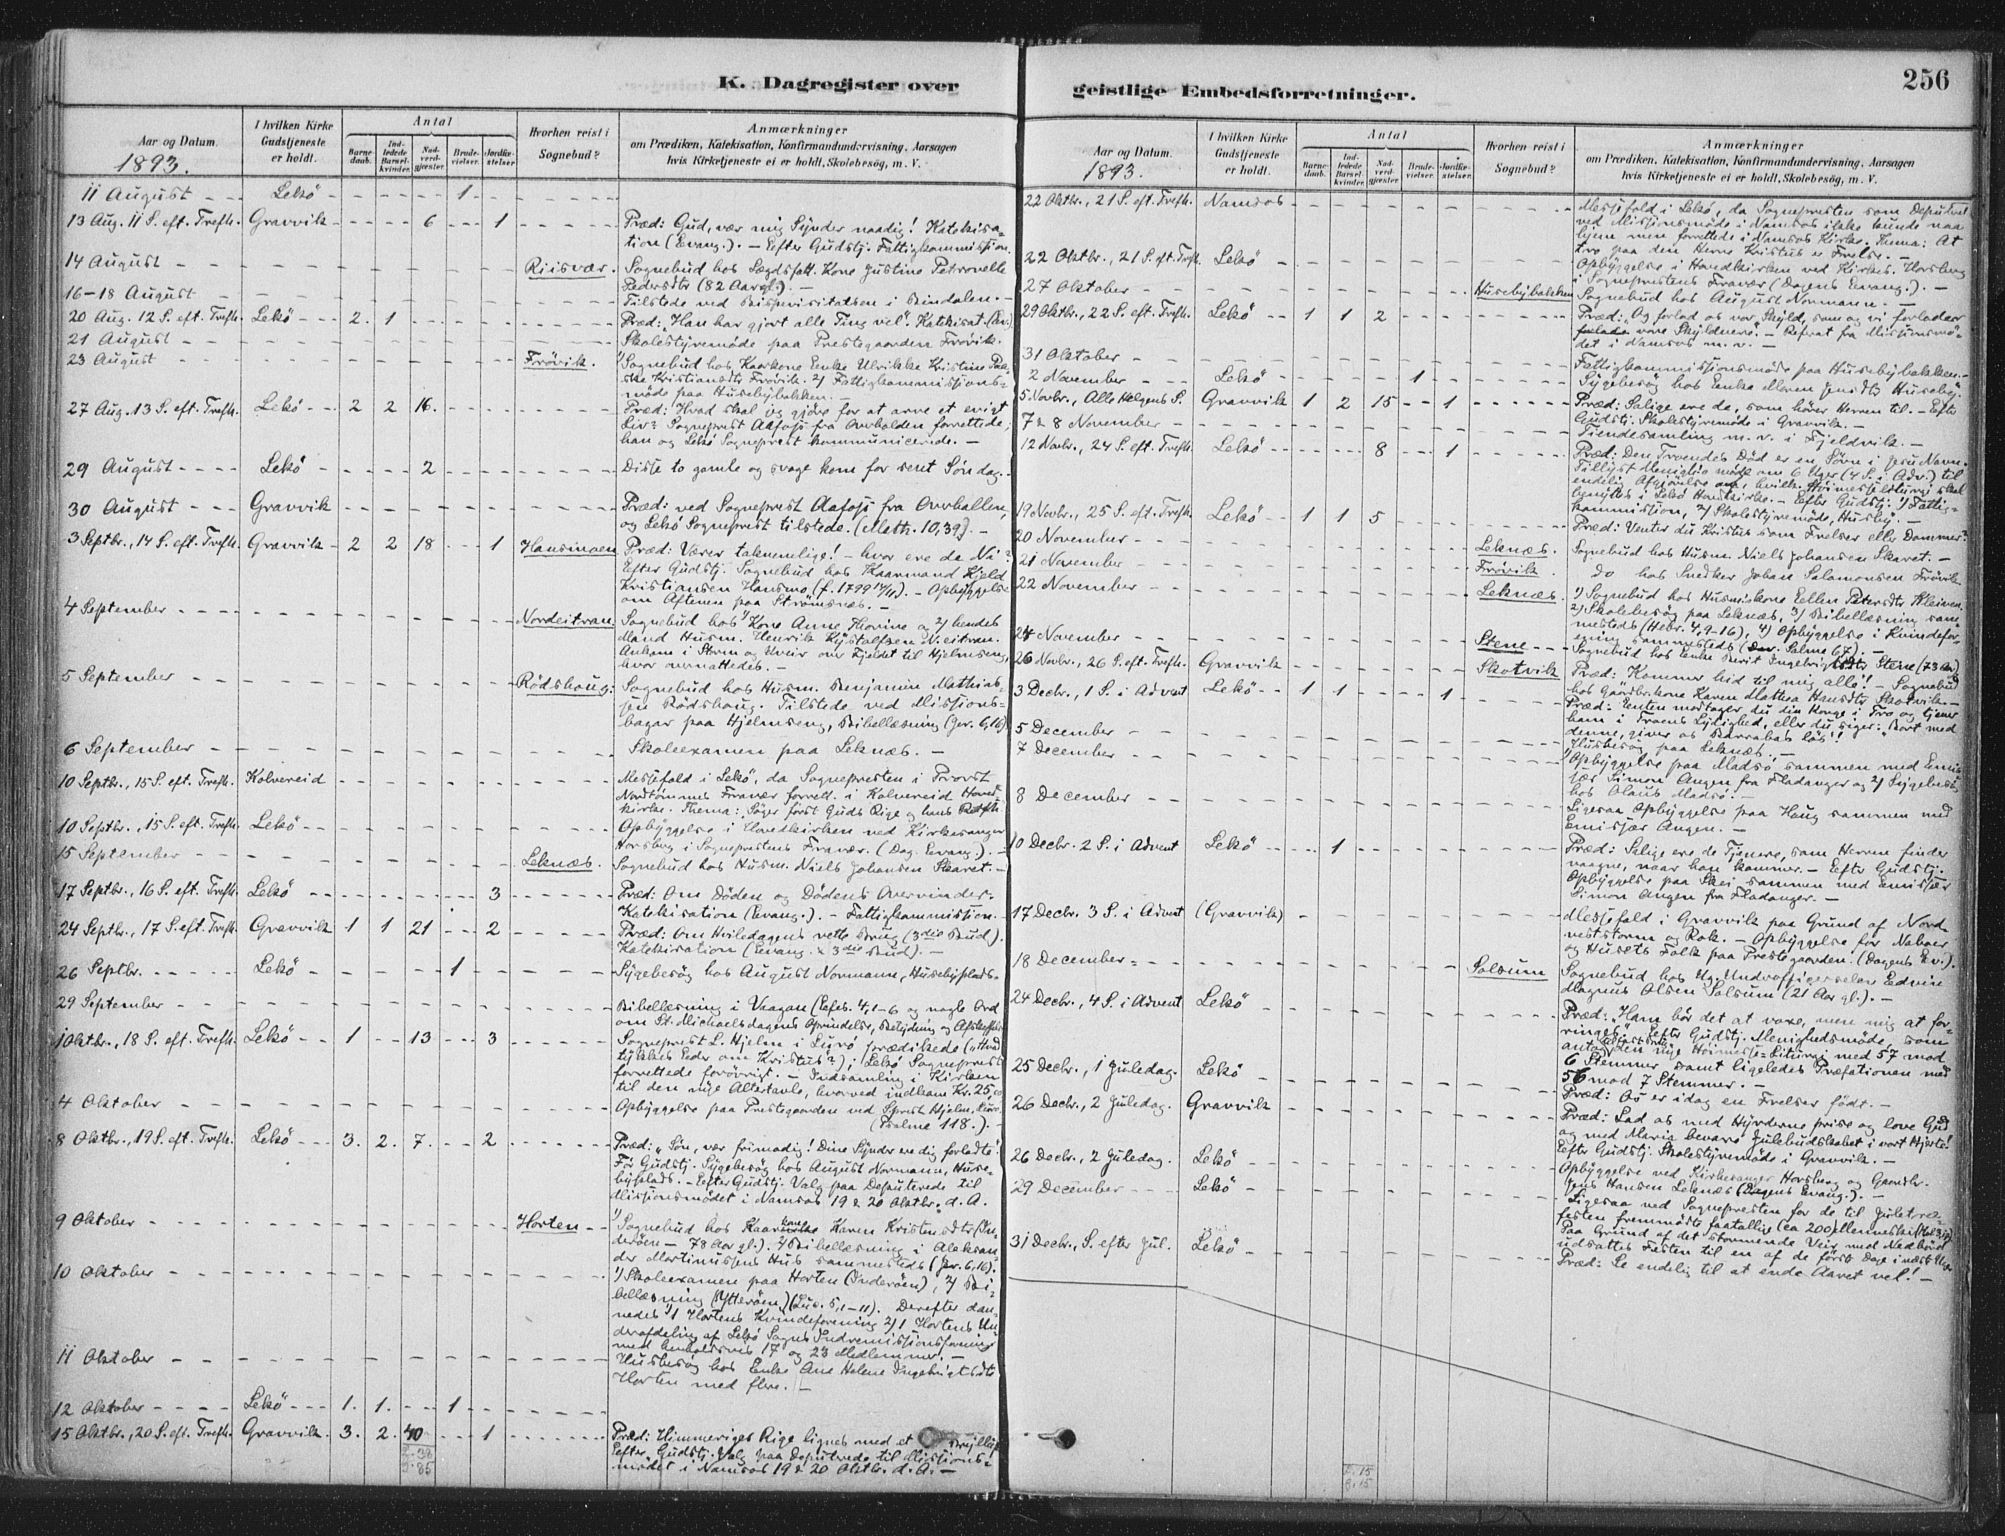 K. Dagregister over
Aar og Datum.
1893.
I hvilken Kirke Gudstjeneste er holdt.
Antal
Barnedaab.
Indledede Barselkvinder.
Nadverdgjester.
Brudevielser.
Jordfæstelser.
Hvorhen reist i Sognebud?
Anmærkninger
om Prædiken, Katekisation, Konfirmandundervisning, Aarsagen
hvis Kirketjeneste ei er holdt, Skolebesøg, m. V.
11 August Lekö 1
13 Aug. 11 S. eft. Trefh. Gravvik 6 1 Præd: Gud, vær mig Synder naadig! Katekisa-
tion (Evang.). – Efter Gudstj. Fattigkommission.
14 August Riisvær. Sognebud hos Lægdsfatt. Kone Justine Petronelle
Pedersdtr (82 Aar gl.). –
16–18 August Tilstede ved Bispevisitatsen i Bindalen. –
20 Aug. 12 S. eft. Trefh. Lekö 2. 1 Præd: "Han har gjort alle Ting vel". Katekisat. (Ev.)
21 August Skolestyremøde paa Prestegaarden Frövik.
23 August Frövik. 1) Sognebud hos Kaarkone Enke Ulrikke Kristine
Kristiansdtr Frövik. 2) Fattigkommissjons-
møde paa Husebybakken. –
27 Aug. 13 S. eft. Trefh. Lekö 2 2 16. Præd: Hvad skal jeg gjöre for at arve et evigt
Liv? Sogneprest Aafoss fra Overhalden forrettede;
han og Lekö Sogneprest kommunicerede. –
29 August Lekö 2 Disse to gamle og svage kom for sent Söndag.
30 August Gravvik Præd: ved Sogneprest Aafoss fra Overhallen,
og Lekö Sogneprest tilstede. (Math. 10,39). –
3 Septbr., 14 S. eft. Trefh. Gravvik 2 2 18 1 Hansmoen Præd: Værer taknemlige! – hvor ere de Ni?
Efter Gudstj. Sognebud hos Kaarmand Kjeld
Kristiansen Hansmo (f. 1799). – Opbyggelse
om Aftenen paa Strömsnæs. –
4 September Nordeitran Sognebud hos 1) Kone Anne Thorine og 2) hendes
Mand Husm. Henrik Kystalfsen N. eitran.
Ankom i Storm og Uveir over Fjeldet til Hjelmseng,
hvor overnattedes. –
5 September Rödshaug: Sognebud hos Husm. Benjamin Mathias-
sen Rödshaug. Tilstede ved Missions-
bazar paa Hjelmseng, Bibellæsning (Jer. 6,16)
6 September Skoleexamen paa Leknæs. –
10 Septbr., 15 S. eft. Trefh. Kolvereid Messefald i Lekö, da Sognepresten i Provst
Nordtömmes Fravær forrett. i Kolvereid Hoved-
kirke. Thema: Söger först Guds Rige og hans Retfh.
10 Septbr., 15 S. eft. Trefh. Lekö Opbyggelse i Hovedkirken ved Kirkesanger
Horsberg i Sogneprestens Fravær. (Dag. Evang.). –
15 September Leknæs. Sognebud hos Husm. Niels Johansen Skaret. –
17 Septbr., 16 S. eft. Trefh. Lekö 3 Præd: Om Döden og Dödens Overvinder.
Katekisation (Evang.). – Fattigkommission.
24 Septbr., 17 S. eft. Trefh. Gravvik 1 1 21 2 Præd: Om Hviledagens rette Brug (3die Bud).
Katekisation (Evang. x 3die Bud). –
26 Septbr. Lekö 1 Sygebesög hos August Normann, Husebyplads.
29 September Bibellæsning i Vaagan (Efes. 4,1–6 og nogle Ord
om St. Michaelsdagens Oprindelse, Betydning og Afskaffelse
1 Oktbr., 18 S. eft. Trefh. Lekö 1 13 3 Sogneprest L. Hjelm i Lurö prædikede ("Hvad
tykkes Eder om Kristus?); Lekö Sogneprest
forrettede forövrigt. – Indsamling i Kirken
til den nye Altertavle, hvorved indkom Kr. 25,
4 Oktober Opbyggelse paa Prestegaarden ved Sprest Hjelm, Lurö.
(Psalme 118.). –
8 Oktbr., 19 S. eft. Trefh. Lekö 3. 2. 7. 2 Præd: "Sön, vær frimodig! Dine Synder ere dig forladte"!
Før Gudstj. Sygebesög hos August Normann, Huse-
byplads. – Efter Gudstj. Valg paa Deputerede til
Missionsmödet i Namsos 19 & 20 Oktbr. d. A.
9 Oktober Horten 1) Sognebud hos Kaarkone Karen Kristensdtr (In-
deröen – 78 Aar gl.). 2) Bibellæsning i Aleksan-
der Martinussens Hus sammesteds (Jer. 6,16).
10 Oktober 1) Skoleexamen paa Horten (Inderöen), 2) Bi-
bellæsning (Ytteröen) (Luc. 5,1–11). Derefter dan-
nedes 1) Hortens Kvindeforening 2) Hortens Un-
derafdeling af Lekö Sogns Indremissionsforening
med henholdsvis 17 og 23 Medlemmer. –
11 Oktober Husbesög hos Enke Ane Helene Ingebrigtsdtr
Horten med flere. –
12 Oktober Lekö 1. 1. 1
15 Oktbr., 20 S. eft. Trefh. Gravvik. 3. 2. 40 1 Præd: Himmeriges Rige lignes med et Bryllup
Efter Gudstj. Valg paa Deputerede til Missions-
mödet i Namsos 19 & 20 Oktbr. d. A. –
geistlige Embedsforretninger.
256
Aar og Datum.
1893.
I hvilken Kirke Gudstjeneste er holdt.
Antal
Barnedaab.
Indledede Barselkvinder.
Nadverdgjester.
Brudevielser.
Jordfæstelser.
Hvorhen reist i Sognebud?
Anmærkninger
om Prædiken, Katekisation, Konfirmandundervisning, Aarsagen
hvis Kirketjeneste ei er holdt, Skolebesøg, m. V.
22 Oktbr., 21 S. eft. Trefh. Namsos Messefald i Lekö, da Sognepresten som Deputeret
ved Missionsmöde i Namsos ikke kunde naa
hjem, men forrettede i Namsos Kirke. Thema: At
tro paa den Herre Kristus er Frelse. –
22 Oktbr., 21 S. eft. Trefh. Lekö Opbyggelse i Hovedkirken ved Kirkes. Horsberg
i Sogneprestens Fravær (Dagens Evang.). –
27 Oktober Husebybakken Sognebud hos August Normann. –
29 Oktbr., 22 S. eft. Trefh. Lekö 1 1 2 Præd: "Og forlad os vor Skyld, som og vi forlader
vore Skyldnere". – Referat fra Missionsmö-
det i Namsos m. v. –
31 Oktober Fattigkommissjonsmøde paa Husebybakken. –
2 November Lekö 1 Sygebesög hos Enke Maren Husebÿ.
5 Novbr., Alle Helgens S. Gravvik 1 2 15 1 Præd: Salige ere de, som hører Herren til. – Efter
Gudstj. Skolestyremöde i Gravvik. –
7 & 8 November Tiendesamling m. v. i Fjeldvik. –
12 Novbr., 24 S. eft. Trefh. Lekö 8 1 Præd: Den Troendes Död er en Sövn i Jesu Navn.
Tillyst Menighs möde om 6 Uger (4 S. i Adv.) til
endelig Afgjörelse om, hvilken Höimesseliturgi skal
benyttes i Lekö Hovedkirke. – Efter Gudstj. 1) Fattig-
kommission, 2) Skolestyremöde, Husebÿ. –
19 Novbr., 25 S. eft. Trefh. Lekö 1 1 5 Præd: Venter du Kristus som Frelser eller Dommer?
20 November Leknæs. Sognebud hos Husm. Niels Johansen Skaret. –
21 November Frövik Do hos Snedker Johan Salamonsen Frövik
22 November Leknæs. 1) Sognebud hos Husmkone Ellen Petersdtr Kleiven.
2) Skolebesög paa Leknæs, 3) Bibellæsning sam-
mesteds (Hebr. 4,9–16), 4) Opbyggelse i Kvindefor-
ening sammesteds (Dav. Salme 67). –
24 November Stene Sognebud hos Enke Berit Stene (73 Aar)
26 Novbr., 26 S. eft. Trefh. Gravvik Skotvik Præd: Kommer hid til mig alle! – Sognebud
hos Gaardbr.kone Karen Mathea Hansdtr Skotvik. –
3 Decbr., 1 S. i Advent Lekö 1 1 1 Præd: Enten modtager du din Konge i Tro og tjener
ham i Troens Lydighed, eller du siger: "Bort med
denne, giver os Barrabas lös"!
5 December Husbesög paa Leknæs. –
7 December 1) Opbyggelse paa Madsö sammen med Emis-
sær Simon Angen fra Fladanger og 2) Sygebesög
hos Olaus Madsö. –
8 December Ligesaa Opbyggelse paa Haug sammen med
Emissær Angen. –
10 Decbr. 2 S. i Advent Lekö 1 Præd: Salige ere de Tjenere, som Herren finder
vaagne, naar han kommer. – Efter Gudstj.
Opbyggelse paa Skei sammen med Emissær
Simon Angen fra Fladanger. –
17 Decbr. 3 S. i Advent (Gravvik) Messefald i Gravvik paa Grund af Nord-
veststorm og Rok. – Opbyggelse for Naboer
og Husets Folk paa Prestegaarden. (Dagens Ev.).
18 December Solsum Sognebud hos Ug. Undvofficerselev Edvin
Magnus Olsen Solsum (21 Aar gl.). –
24 Decbr., 4 S. i Advent Lekö Præd: "Ham bör det at voxe, men mig at for-
ringes". Efter Gudstj. Menighedsmöde, som
antog den nye Höimesse-Liturgi med 57 mod
6 Stemmer, samt ligeledes Præfationen med
56 mod 7 Stemmer. –
25 Decbr., 1 Juledag. Lekö Præd: Os er idag en Frelser födt. –
26 Decbr., 2 Juledag. Gravvik Præd: Lad os med Hyrderne prise og love Gud
og med Maria bevare Julebudskabet i vort Hjerte!
Efter Gudstj. Skolestyremöde i Gravvik. –
26 Decbr., 2 Juledag. Lekö Opbyggelse ved Kirkesanger Horsberg og Gaardbr.
Jens Hansen Leknæs (Dagens Evang.). –
29 December Lekö Ligesaa ved Sognepresten for de til Juletræ-
festen fremmödte faatallige (ca 200) Mennesker
Paa Grund af det stormende Veir med Nedbör
udsattes Festen til en af de först Dage i næste Uge
31 Decbr., S. efter Jul. Lekö Præd: Se endelig til at ende Aaret vel! –